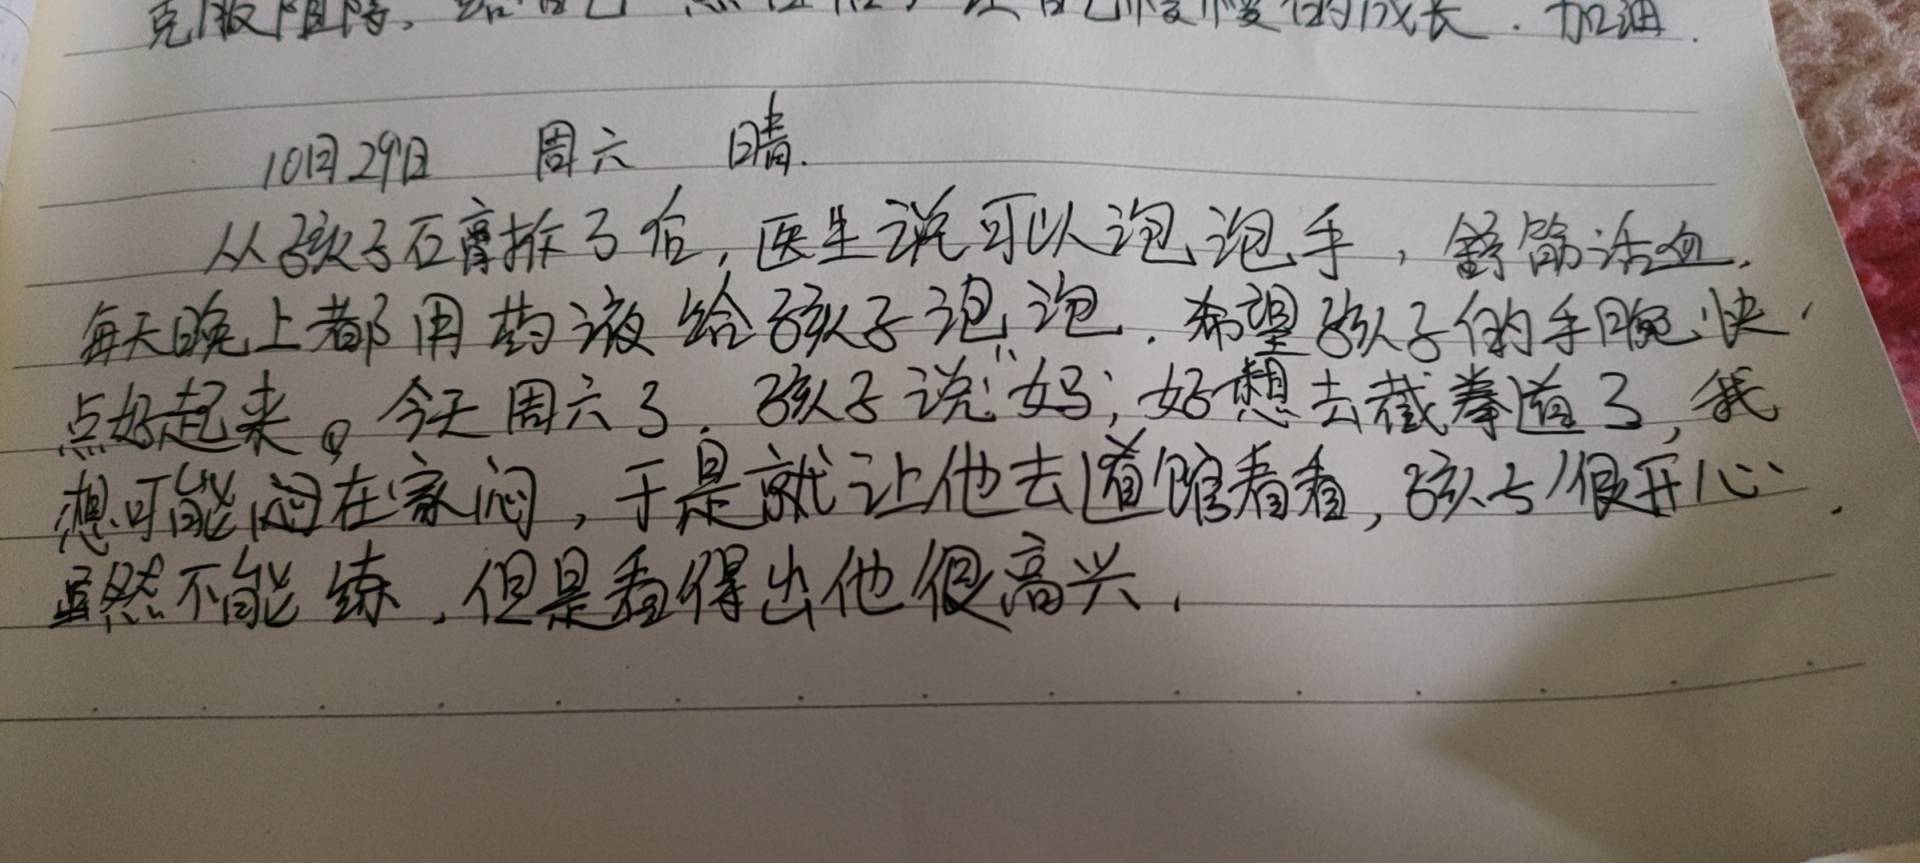 克服阻障,给自己一点性信,让自己慢慢的成长.加油.
10月29日 周六 晴.
从孩子石膏拆了后,医生说可以泡泡手,舒筋活血.
每天晚上都用药液给孩子泡泡.希望孩子的手腕快
点好起来。今天周六了.孩子说:"妈,好想去截拳道了,我
想可能闷在家闷,于是就让他去道馆看看,孩子很开心.
虽然不能练,但是看得出他很高兴.